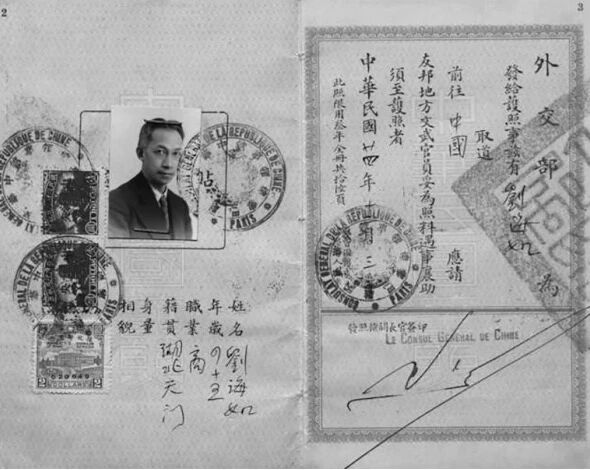 2
姓名 劉海如
年歲 四十五
職業 商
籍貫 湖北天门
身量
相貌
DE LA REPUBLIQUE DE CHINE
PARIS
CONSULAT GENERAL DE LA REPUBLIQUE DE CHINE
PARIS
2
DOLLARS
3
外交部 為
發給護照事茲有 劉海如
取道
前往 中國 應請
友邦地方文武官員妥為照料遇事襄助
須至護照者
中華民國廿四年十 月三
此照限用叁年全冊共拾陸頁
CONSULAT GENERAL DE LA REPUBLIQUE DE CHINE
PARIS
印簽官長關機照發
LE CONSUL GENERAL DE CHINE